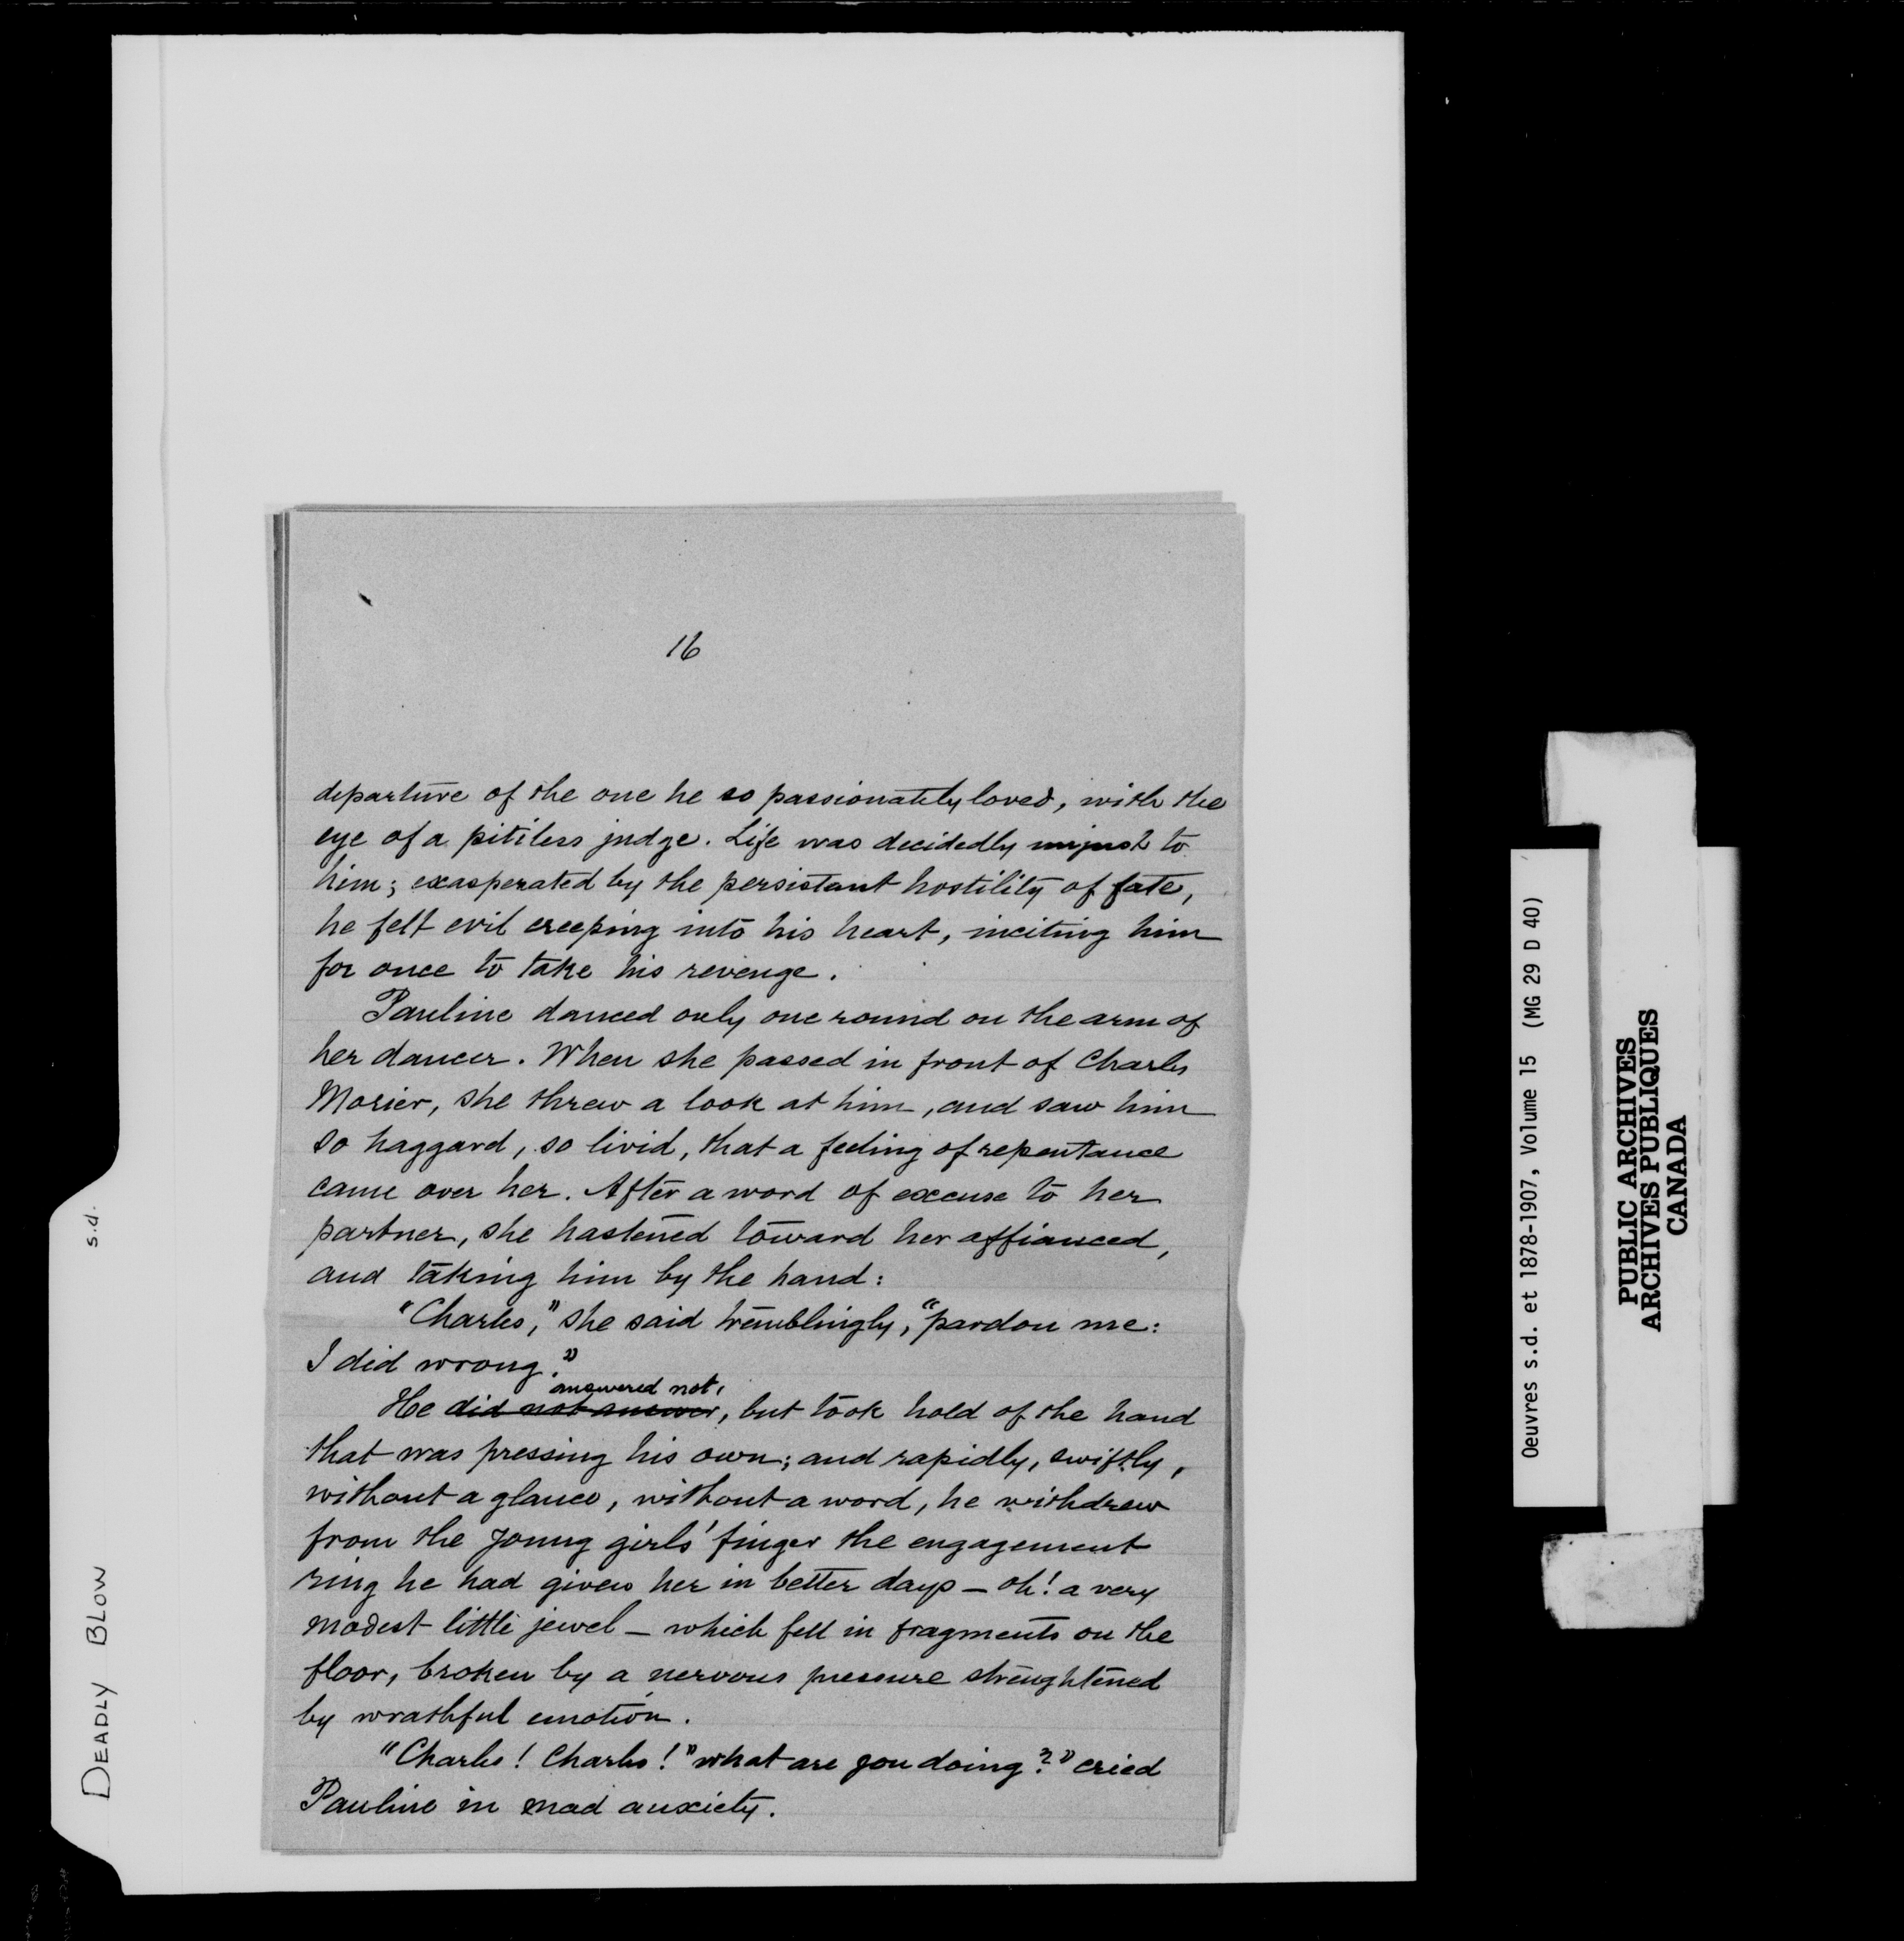 16
departure of the one he so passionately loved, with the
eye of a pitiless judge. Life was decidedly unjust to
him; exasperated by the persistant hostility of fate,
he felt evil creeping into his heart, inciting him
for once to take his revenge.
Pauline danced only one round on the arm of
her dancer. When she passed in front of Charles
Morier, she threw a look at him, and saw him
so haggard, so livid, that a feeling of repentance
came over her. After a word of excuse to her
partner, she hastened toward her affianced,
and taking him by the hand:
"Charles," she said tremblingly, "pardon me:
I did wrong."
answered not,
He did not answer, but took hold of the hand
that was pressing his own; and rapidly, swiftly,
without a glance, without a word, he withdrew
from the young girls' finger the engagement
ring he had given her in better days — oh! a very
modest little jewel — which fell in fragments on the
floor, broken by a nervous pressure strenghtened
by wrathful emotion.
"Charles! Charles!" what are you doing?" cried
Pauline in mad anxiety.
DEADLY BLOW
s.d.
Oeuvres s.d. et 1878-1907, Volume 15 (MG 29 D 40)
PUBLIC ARCHIVES
ARCHIVES PUBLIQUES
CANADA